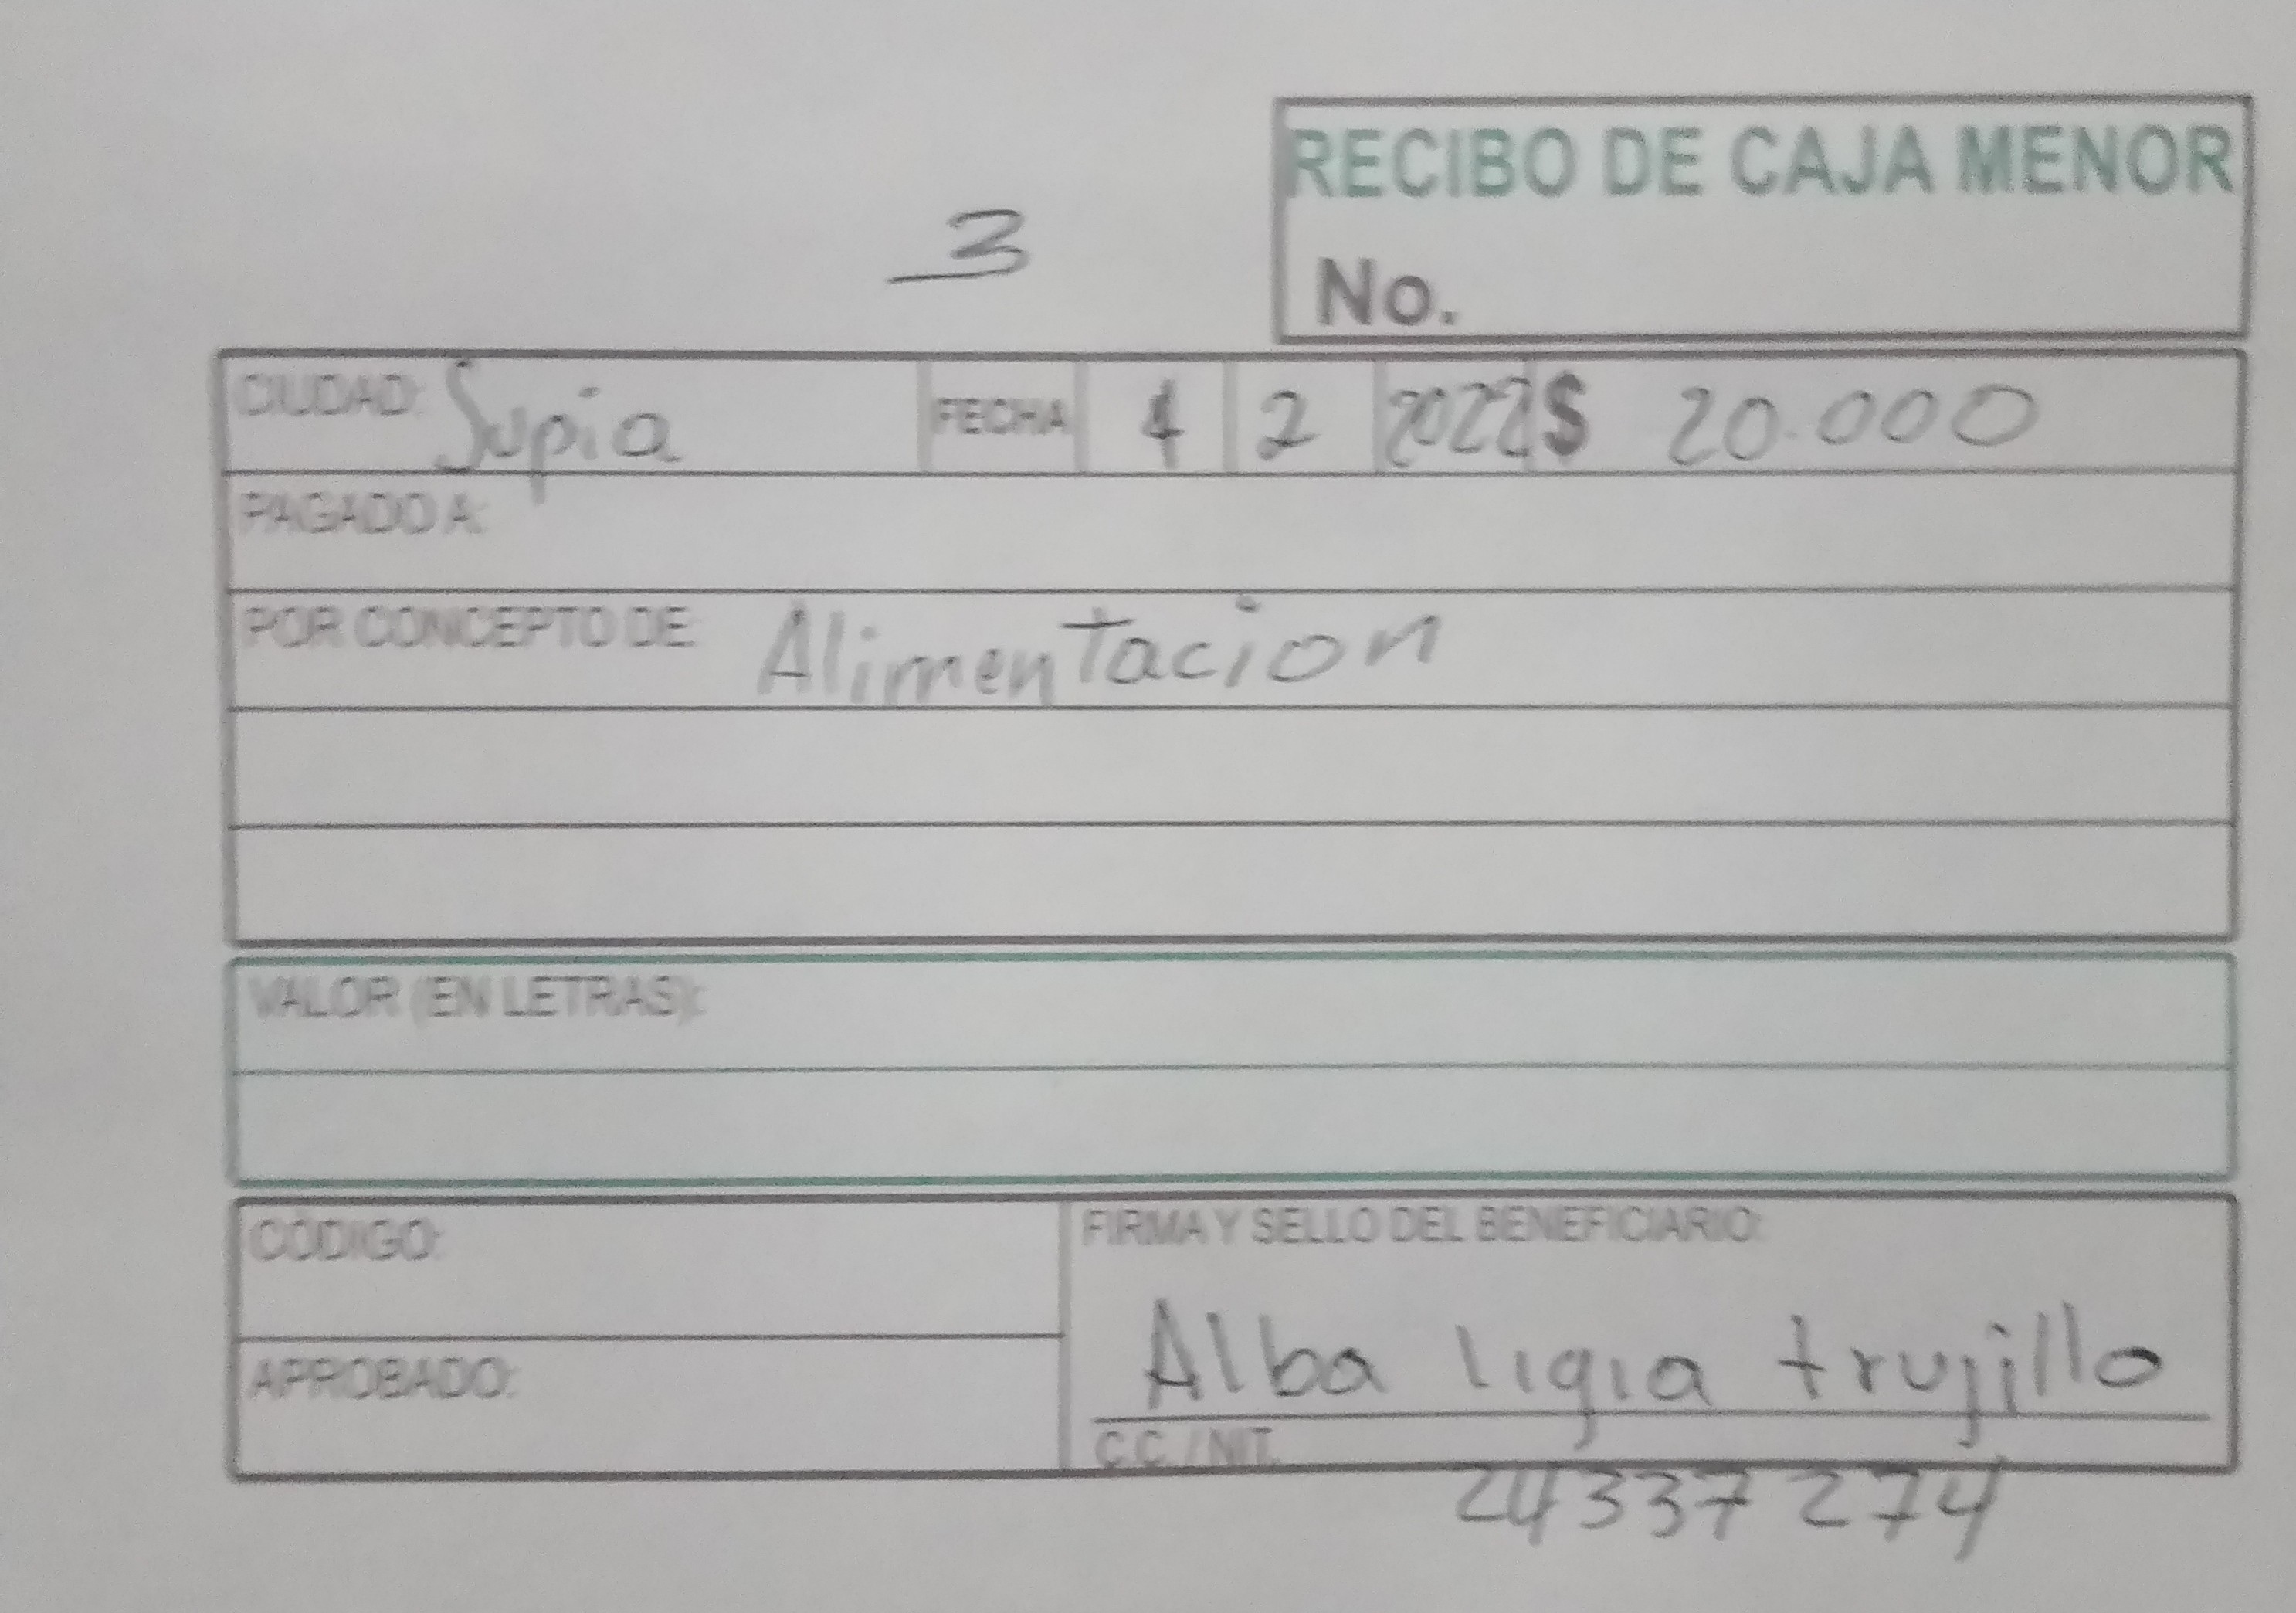 RECIBO DE CAJA MENOR
3
No.
CIUDAD: Supia FECHA 4 2 2022 $ 20.000
PAGADO A:
POR CONCEPTO DE: Alimentacion
VALOR (EN LETRAS):
CÓDIGO:
FIRMA Y SELLO DEL BENEFICIARIO:
Alba ligia trujillo
APROBADO:
C.C. / NIT.
24337274